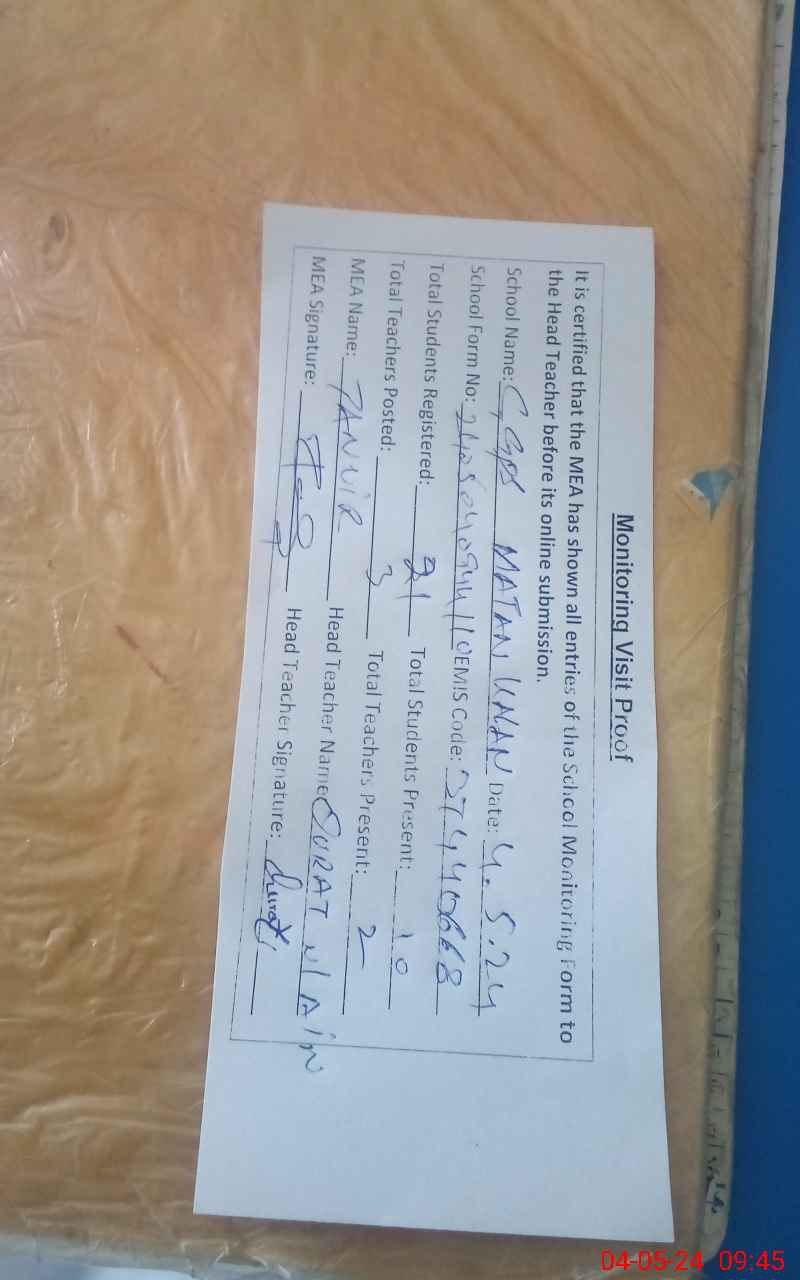 Monitoring Visit Proof
It is certified that the MEA has shown all entries of the School Monitoring Form to
the Head Teacher before its online submission.
School Name: GGPS MATAN KALAN Date: 4.5.24
School Form No: EMIS Code: 37440668
Total Students Registered: 21 Total Students Present: 10
Total Teachers Posted: 3 Total Teachers Present: 2
MEA Name: TANVIR Head Teacher Name QURAT ul Ain
MEA Signature: Head Teacher Signature:
04-05-24 09:45